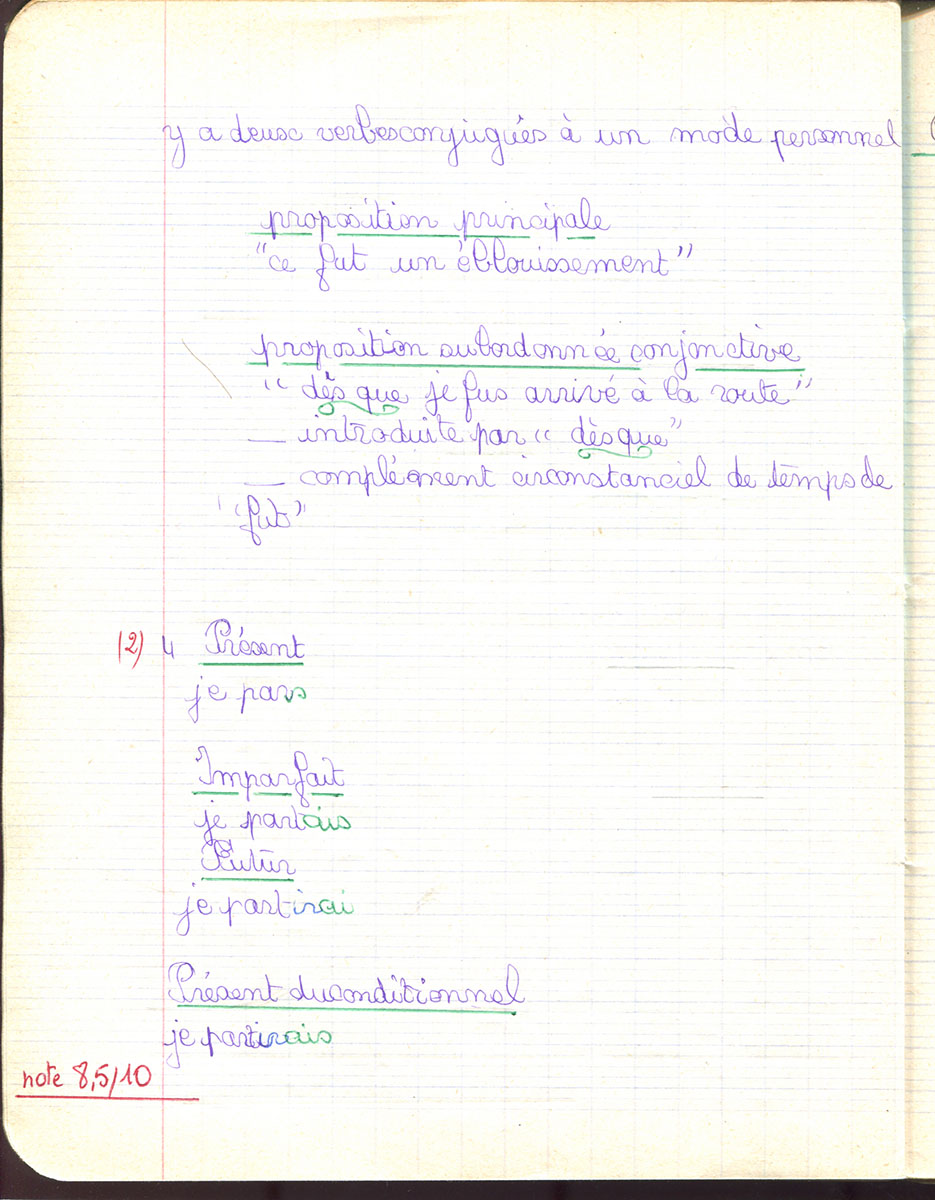 y a deux verbes conjugués à un mode personnel
proposition principale
"ce fut un éblouissement"
proposition subordonnée conjonctive
"dès que je fus arrivé à la route"
— introduite par "dès que"
— complément circonstanciel de temps de
"fut"
(2) 4 Présent
je pars
Imparfait
je partais
Futur
je partirai
Présent du conditionnel
je partirais
note 8,5/10